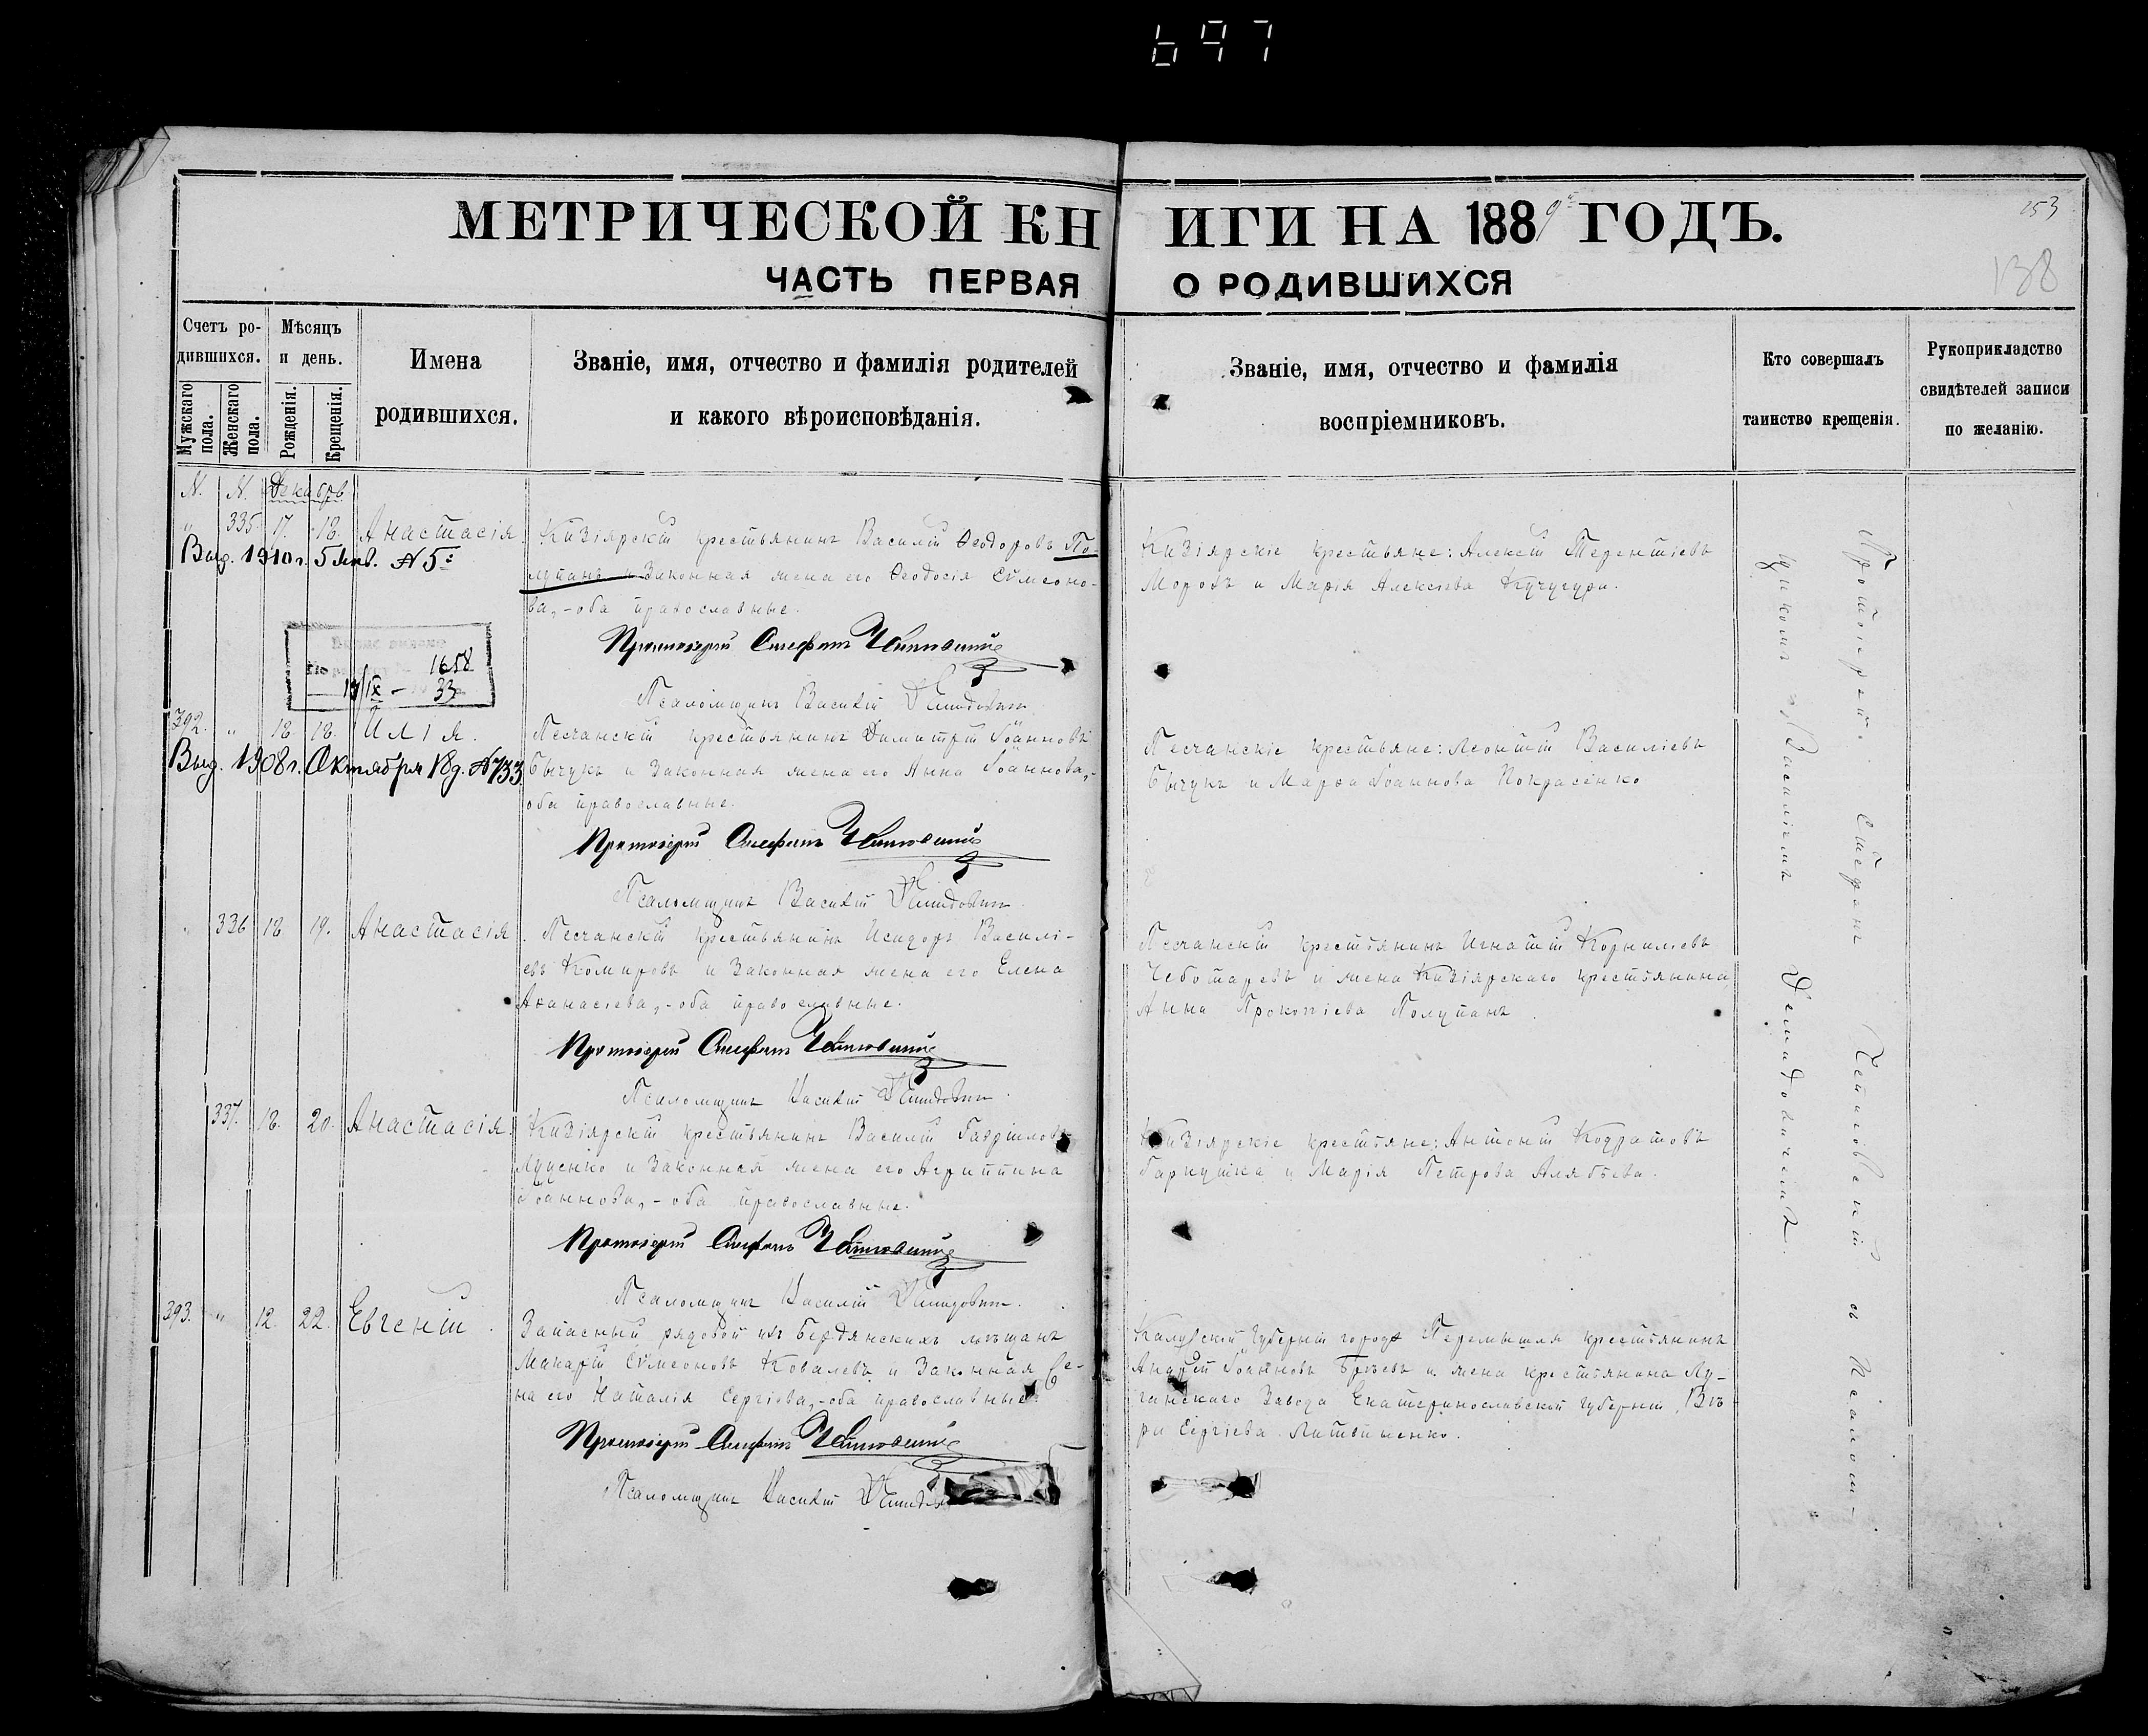 697
МЕТРИЧЕСКОЙ КНИГИ НА 1889 ГОДЪ.
153
138
ЧАСТЬ ПЕРВАЯ О РОДИВШИХСЯ
Счетъ родившихся.
Мужскаго пола.
Женскаго пола.
Мѣсяцъ и день.
Рожденія.
Крещенія.
Имена родившихся.
Званіе, имя, отчество и фамилія родителей
и какого вѣроисповѣданія.
Званіе, имя, отчество и фамилія
воспріемниковъ.
Кто совершалъ
таинство крещенія.
Рукоприкладство
свидѣтелей записи
по желанію.
N. N. Декабрь
" 335 17. 18. Анастасія.
Выд. 1910 г. 5 Янв. N 5
Кизіярскій крестьянинъ Василій Ѳеодоровъ По-
лупанъ и законная жена его Ѳеодосія Сѵмеоно-
ва, - оба православные.
Протоіерей Стефанъ
Псаломщикъ Василій
Кизіярскіе крестьяне: Алексій Терентіевъ
Морозъ и Марія Алексіева Кучугура.
1658
19/IX - 33
392. " 18 18. Илія.
Выд. 1908 г. Октября 18 д. N 733
Песчанскій крестьянинъ Димитрій Іоанновъ
Бычукъ и законная жена его Анна Іоаннова, -
оба православные.
Протоіерей Стефанъ
Псаломщикъ Василій
Песчанскіе крестьяне: Леонтій Василіевъ
Бычукъ и Марѳа Іоаннова Покрасенко
" 336 18 19. Анастасія.
Песчанскій крестьянинъ Исидоръ Василі-
евъ Комировъ и законная жена его Елена
Аѳанасіева, - оба православные.
Протоіерей Стефанъ
Псаломщикъ Василій
Песчанскій крестьянинъ Игнатій Корниліевъ
Чеботаревъ и жена Кизіярскаго крестьянина
Анна Прокопіева Полупанъ.
337. 18. 20. Анастасія.
Кизіярскій крестьянинъ Василій Гавріиловъ
Луценко и законная жена его Агриппина
Іоаннова, - оба православные.
Протоіерей Стефанъ
Псаломщикъ Василій
Кизіярскіе крестьяне: Антоній Кодратовъ
Гаркушка и Марія Петрова Алябьева.
393. " 12. 22. Евгеній.
Запасный рядовой изъ Бердянскихъ мѣщанъ
Макарій Сѵмеоновъ Ковалевъ и законная же-
на его Наталія Сергіева, - оба православные.
Протоіерей Стефанъ
Псаломщикъ Василій
Калужской губерніи города Перемышля крестьянинъ
Андрей Іоанновъ и жена крестьянина Лу-
ганскаго завода Екатеринославской губерніи, Вѣ
ра Сергіева Литвиненко.
Протоіерей Стефанъ и Псалом-
щикомъ Василіемъ Демидовичемъ.